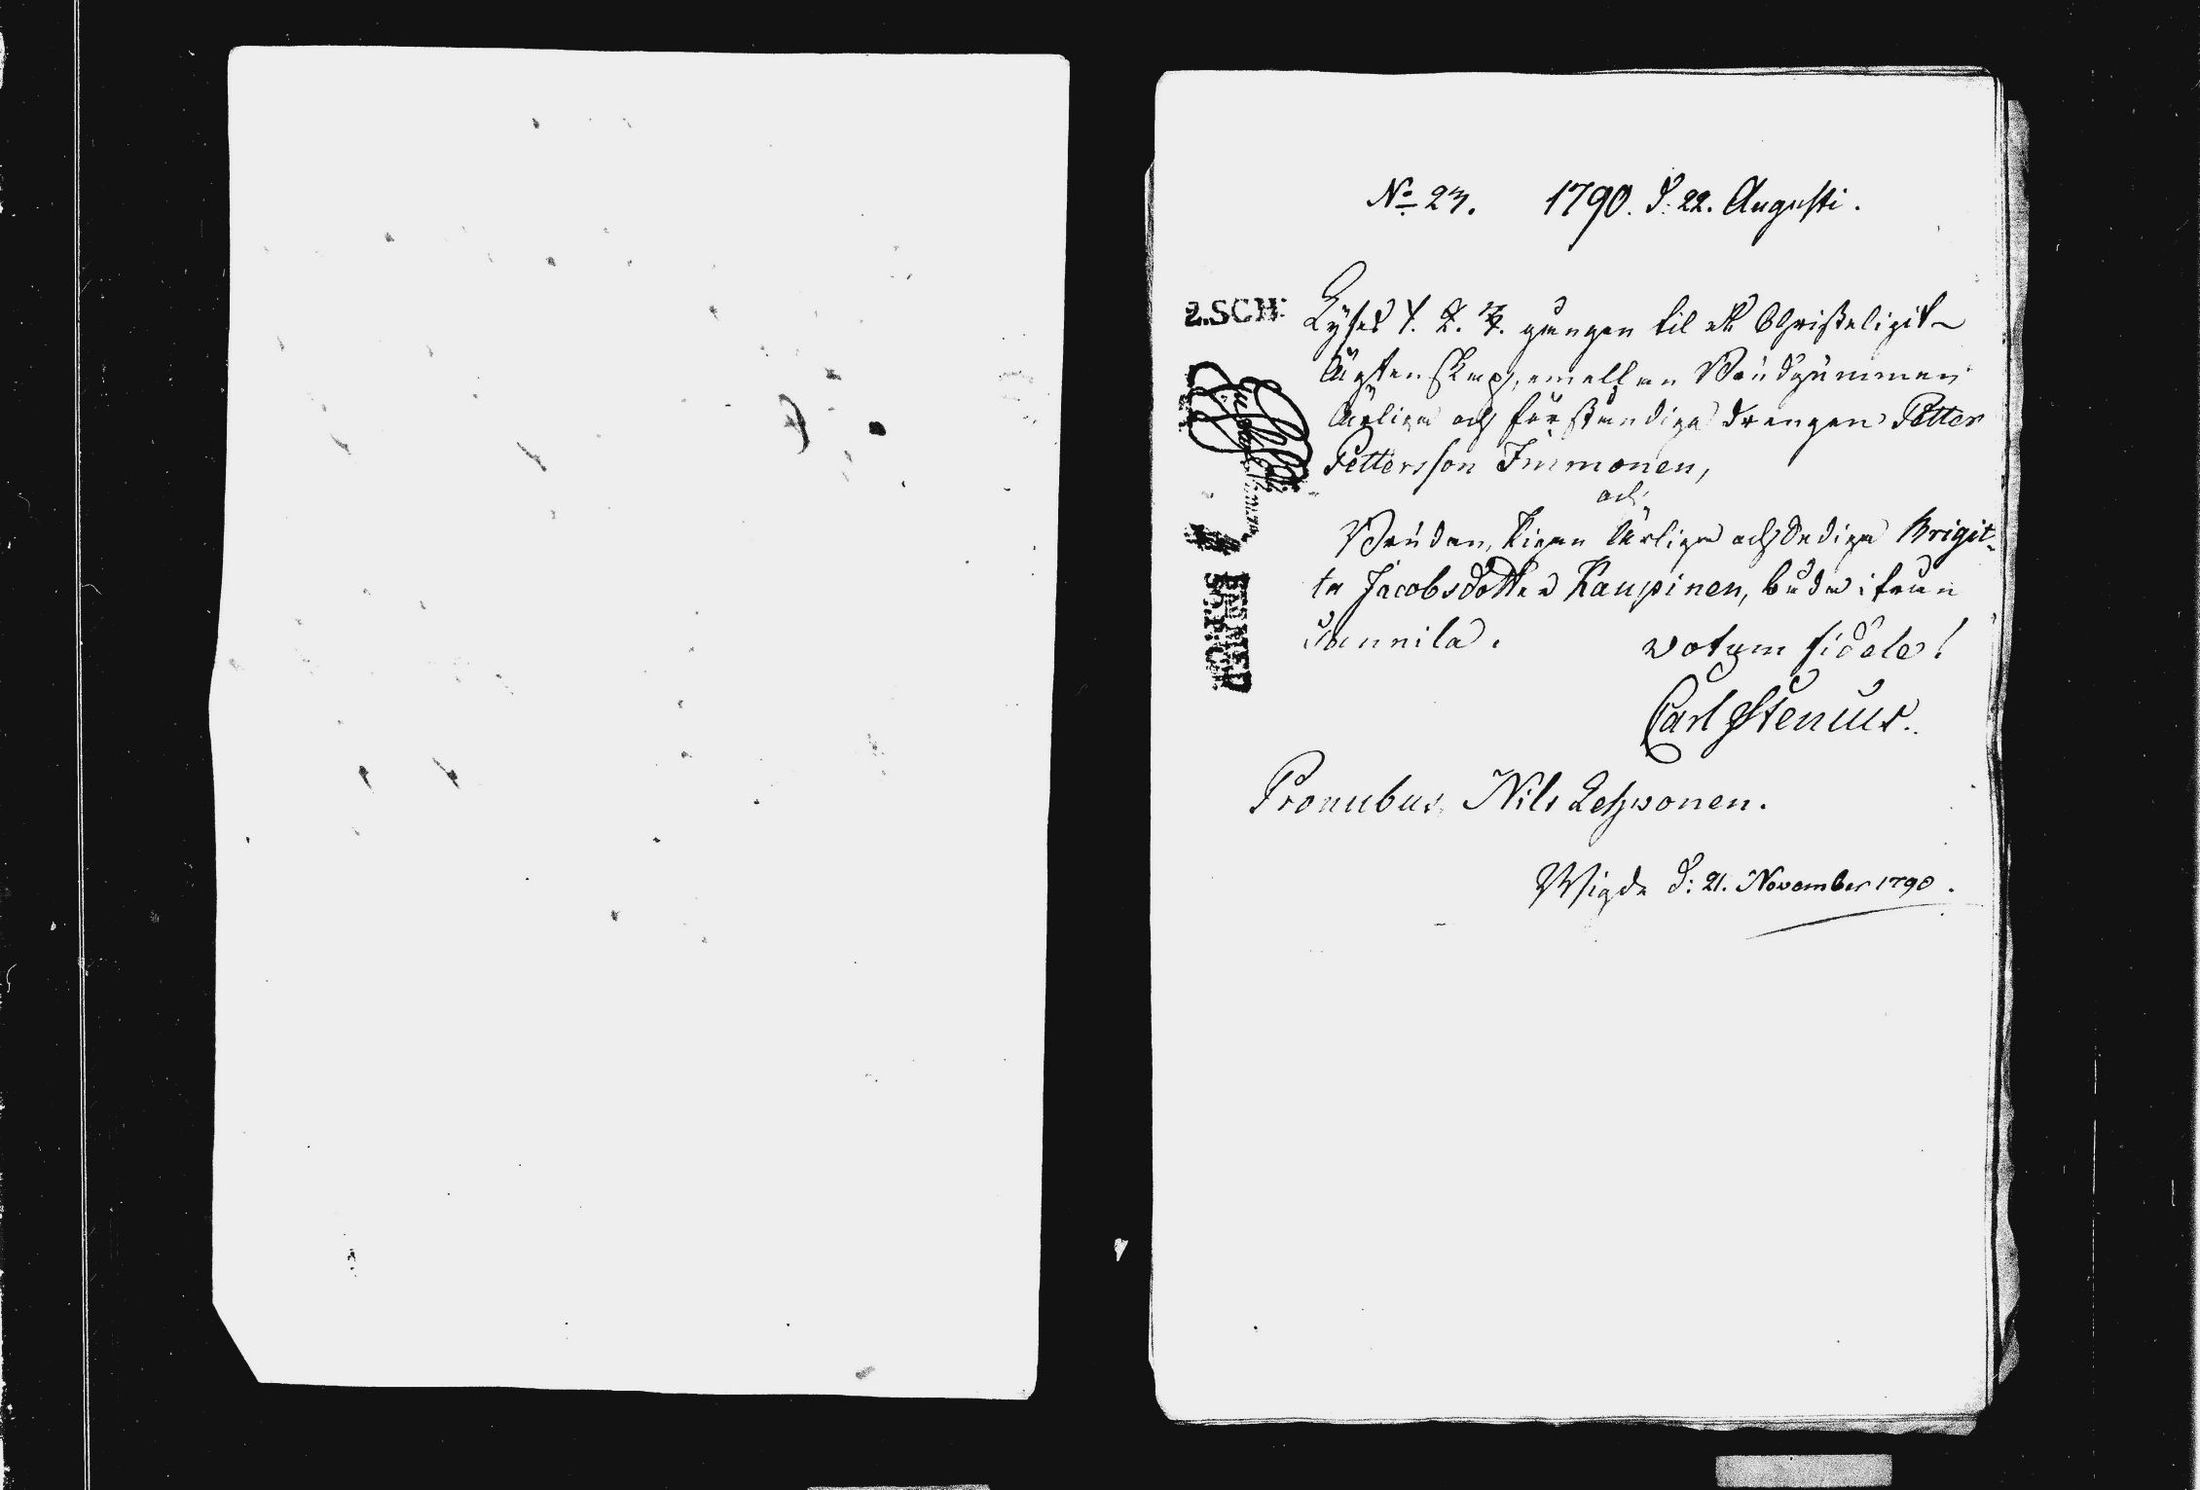 No 23. 1790. d: 22. Augusti.
2.SCH:
Lyses 1. 2. 3. gången til et Christeligit
ägtenskap, emellan Brudgummen
ärliga och förståndiga drengen Petter
Pettersson Immonen,
och
Bruden, Pigan ärliga och dediga Brigit-
ta Jacobsdotter Kaupinen, både ifrån
Sannila.
votum fidele!
Carl Stenius.
Pronubus, Nils Lehwonen.
Wigde d: 21. November 1790.